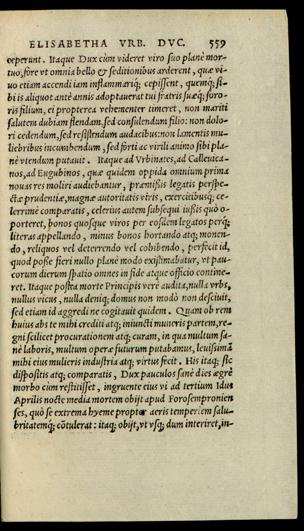 ELISABETHA VRB. DVC. 559
ceperunt. Itaque Dux cùm videret viro suo planè mor-
tuo, fore vt omnia bello & seditionibus arderent, quæ vi-
uo etiam accendi iam inflammariq; cepissent, quemq; si-
bi is aliquot antè annis adoptauerat tui fratris suæq; soro-
ris filium, ei propterea vehementer timeret, non mariti
salutem dubiam flendam, sed consulendum filio: non dolo-
ri cedendum, sed resistendum audacibus: non lamentis mu-
liebribus incumbendum, sed forti ac virili animo sibi pla-
nè vtendum putauit. Itaque ad Vrbinates, ad Calleuica-
nos, ad Eugubinos, quæ quidem oppida omnium prima
nouas res moliri audiebantur, præmißis legatis perspe-
ctæ prudentiæ, magnæ autoritatis viris, exercitibusq; ce-
lerrimè comparatis, celerius autem subsequi iußis quò o-
porteret, bonos quosque viros per eosdem legatos perq;
literas appellando, minus bonos hortando atq; monen-
do, reliquos vel deterrendo vel cohibendo, perfecit id,
quod poße fieri nullo planè modo existimabatur, vt pau-
corum dierum spatio omnes in fide atque officio contine-
ret. Itaque posita morte Principis verè audita, nulla vrbs,
nullus vicus, nulla deniq; domus non modò non desciuit,
sed etiam id aggredi ne cogitauit quidem. Quam ob rem
huius abs te mihi crediti atq; iniuncti muneris partem, re-
gni scilicet procurationem atq; curam, in qua multum sa-
nè laboris, multum operæ futurum putabamus, leuißimā
mihi eius mulieris industria atq; virtus fecit. His itaq; sic
dispositis atq; comparatis, Dux pauculos sanè dies ægrè
morbo cùm restitisset, ingruente eius vi ad tertium Idus
Aprilis nocte media mortem obijt apud Forosempronien
ses, quò se extrema hyeme propter aeris temperiem salu-
britatemq; cōtulerat: itaq; obijt, vt vsq; dum interiret, in-